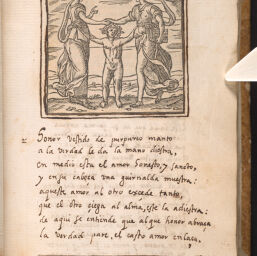 Honor vestido de purpureo manto
a la verdad le da la mano diestra,
en medio esta el amor honesto, y sancto,
y en su cabeça una guirnalda muestra:
aqueste amor al otro excede tanto,
que el otro ciega al alma, este la adiestra:
de aqui se entiende que al que honor abraça
la verdad pare, el casto amor enlaça,